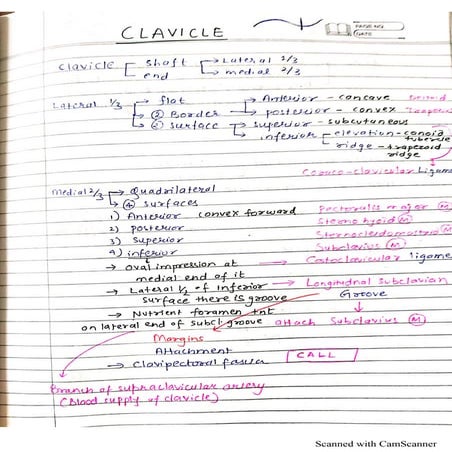 CLAVICLE
PAGE NO.
DATE
Clavicle shaft → Lateral 1/3
end → medial 2/3
Lateral 1/3 → flat Anterior - concave
→ ② Border → posterior - convex
→ ② surface → superior - subcutaneous
inferior elevation - conoid tubercle
ridge - trapezoid ridge
Coraco-clavicular Ligame
Medial 2/3 → Quadrilateral
→ ④ surfaces
1) Anterior convex forward Pectoralis major Ⓜ
2) posterior Sternohyoid Ⓜ
3) Superior Sternocleidomastoid Ⓜ
4) inferior Subclavius Ⓜ
→ oval impression at Costoclavicular ligame
medial end of it
→ Lateral 1/2 of Inferior → Longitudinal Subclavian
surface there is groove Groove
→ Nutrient foramen
on lateral end of subcl. groove attach Subclavius Ⓜ
Margins
Attachment
→ Clavipectoral fascia CALL
Branch of supraclavicular artery
(Blood supply of clavicle)
Scanned with CamScanner